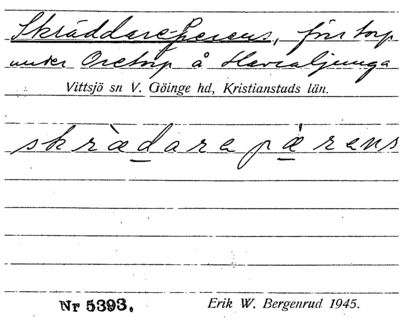 Skräddare-Perens, förr torp
under Oretorp å Havraljunga
Vittsjö sn V. Göinge hd, Kristianstads län.
skrädarepærens
Nr 5393.
Erik W. Bergenrud 1945.